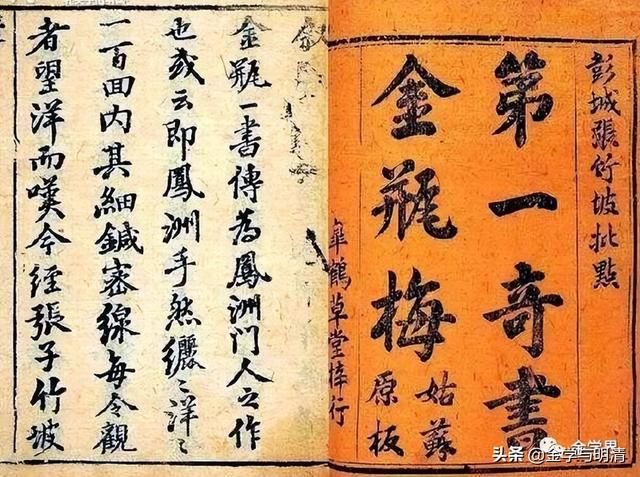 彭城張竹坡批點
第一奇書
金瓶梅
姑蘇
原板
皐鶴草堂梓行
金瓶一書傳為鳳洲門人之作
也或云即鳳洲手然纚〻洋〻
一百面內其細鍼密線每令觀
者望洋而嘆今經張子竹坡
金学界
头条 @金学与明清